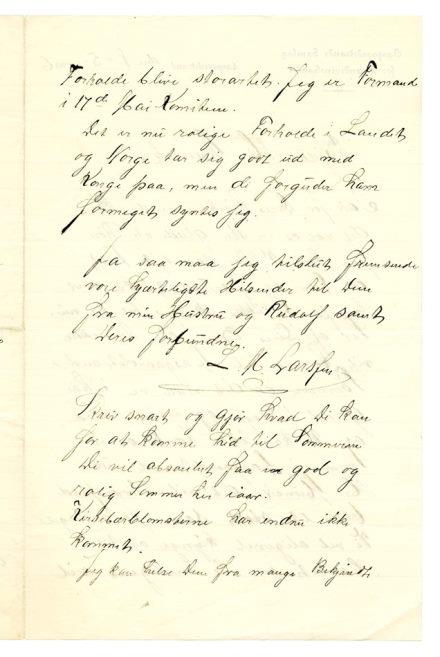 Forholde blive storartet. Jeg er Formand
i 17de Mai Komiteen.
Det er nu rolige Forholde i Landet
og Norge tar sig godt ud med
Konge paa, men de forguder ham
formeget syntes jeg.
Ja saa maa jeg tilslut fremsende
vore hjærteligste Hilsender til Dem
fra min Hustru og Rudolf samt
Deres forbundne
M. Larssen
Skriv snart og gjør hvad De kan
for at komme hid til Sommeren
De vil absolut faa en god og
rolig Sommer her iaar.
Kirsebærblomsterne har endnu ikke
kommet.
Jeg kan hilse Dem fra mange Bekjendte